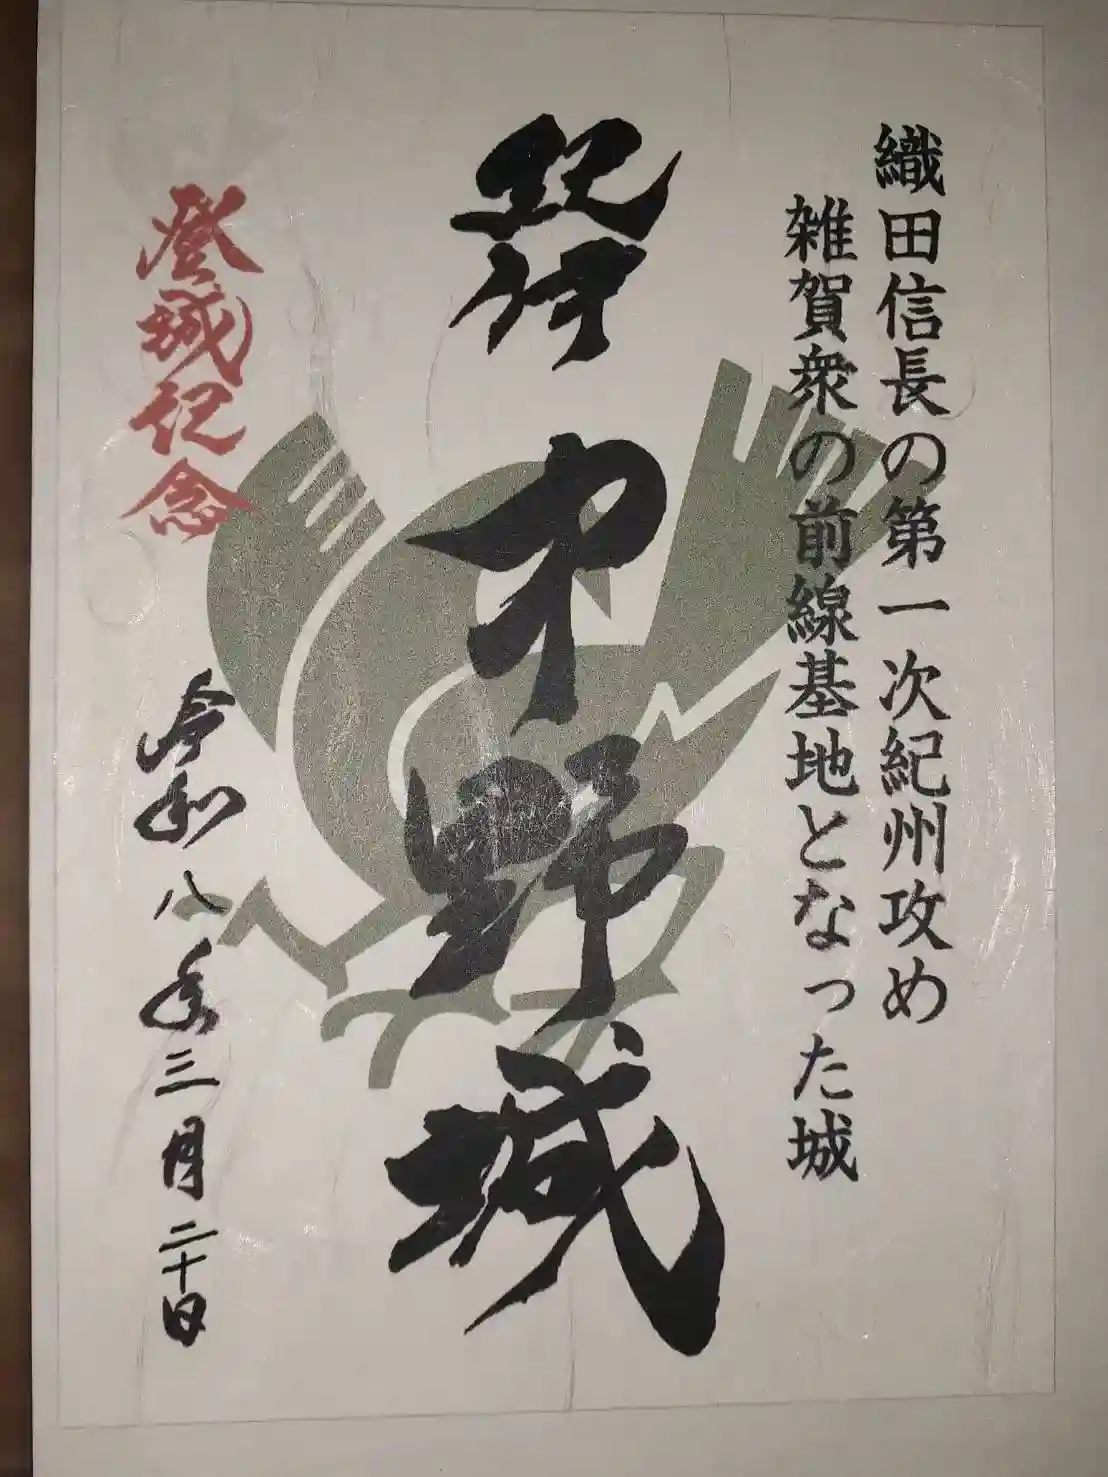 織田信長の第一次紀州攻め
雑賀衆の前線基地となった城
紀伊 中野城
登城記念
令和八年三月二十日